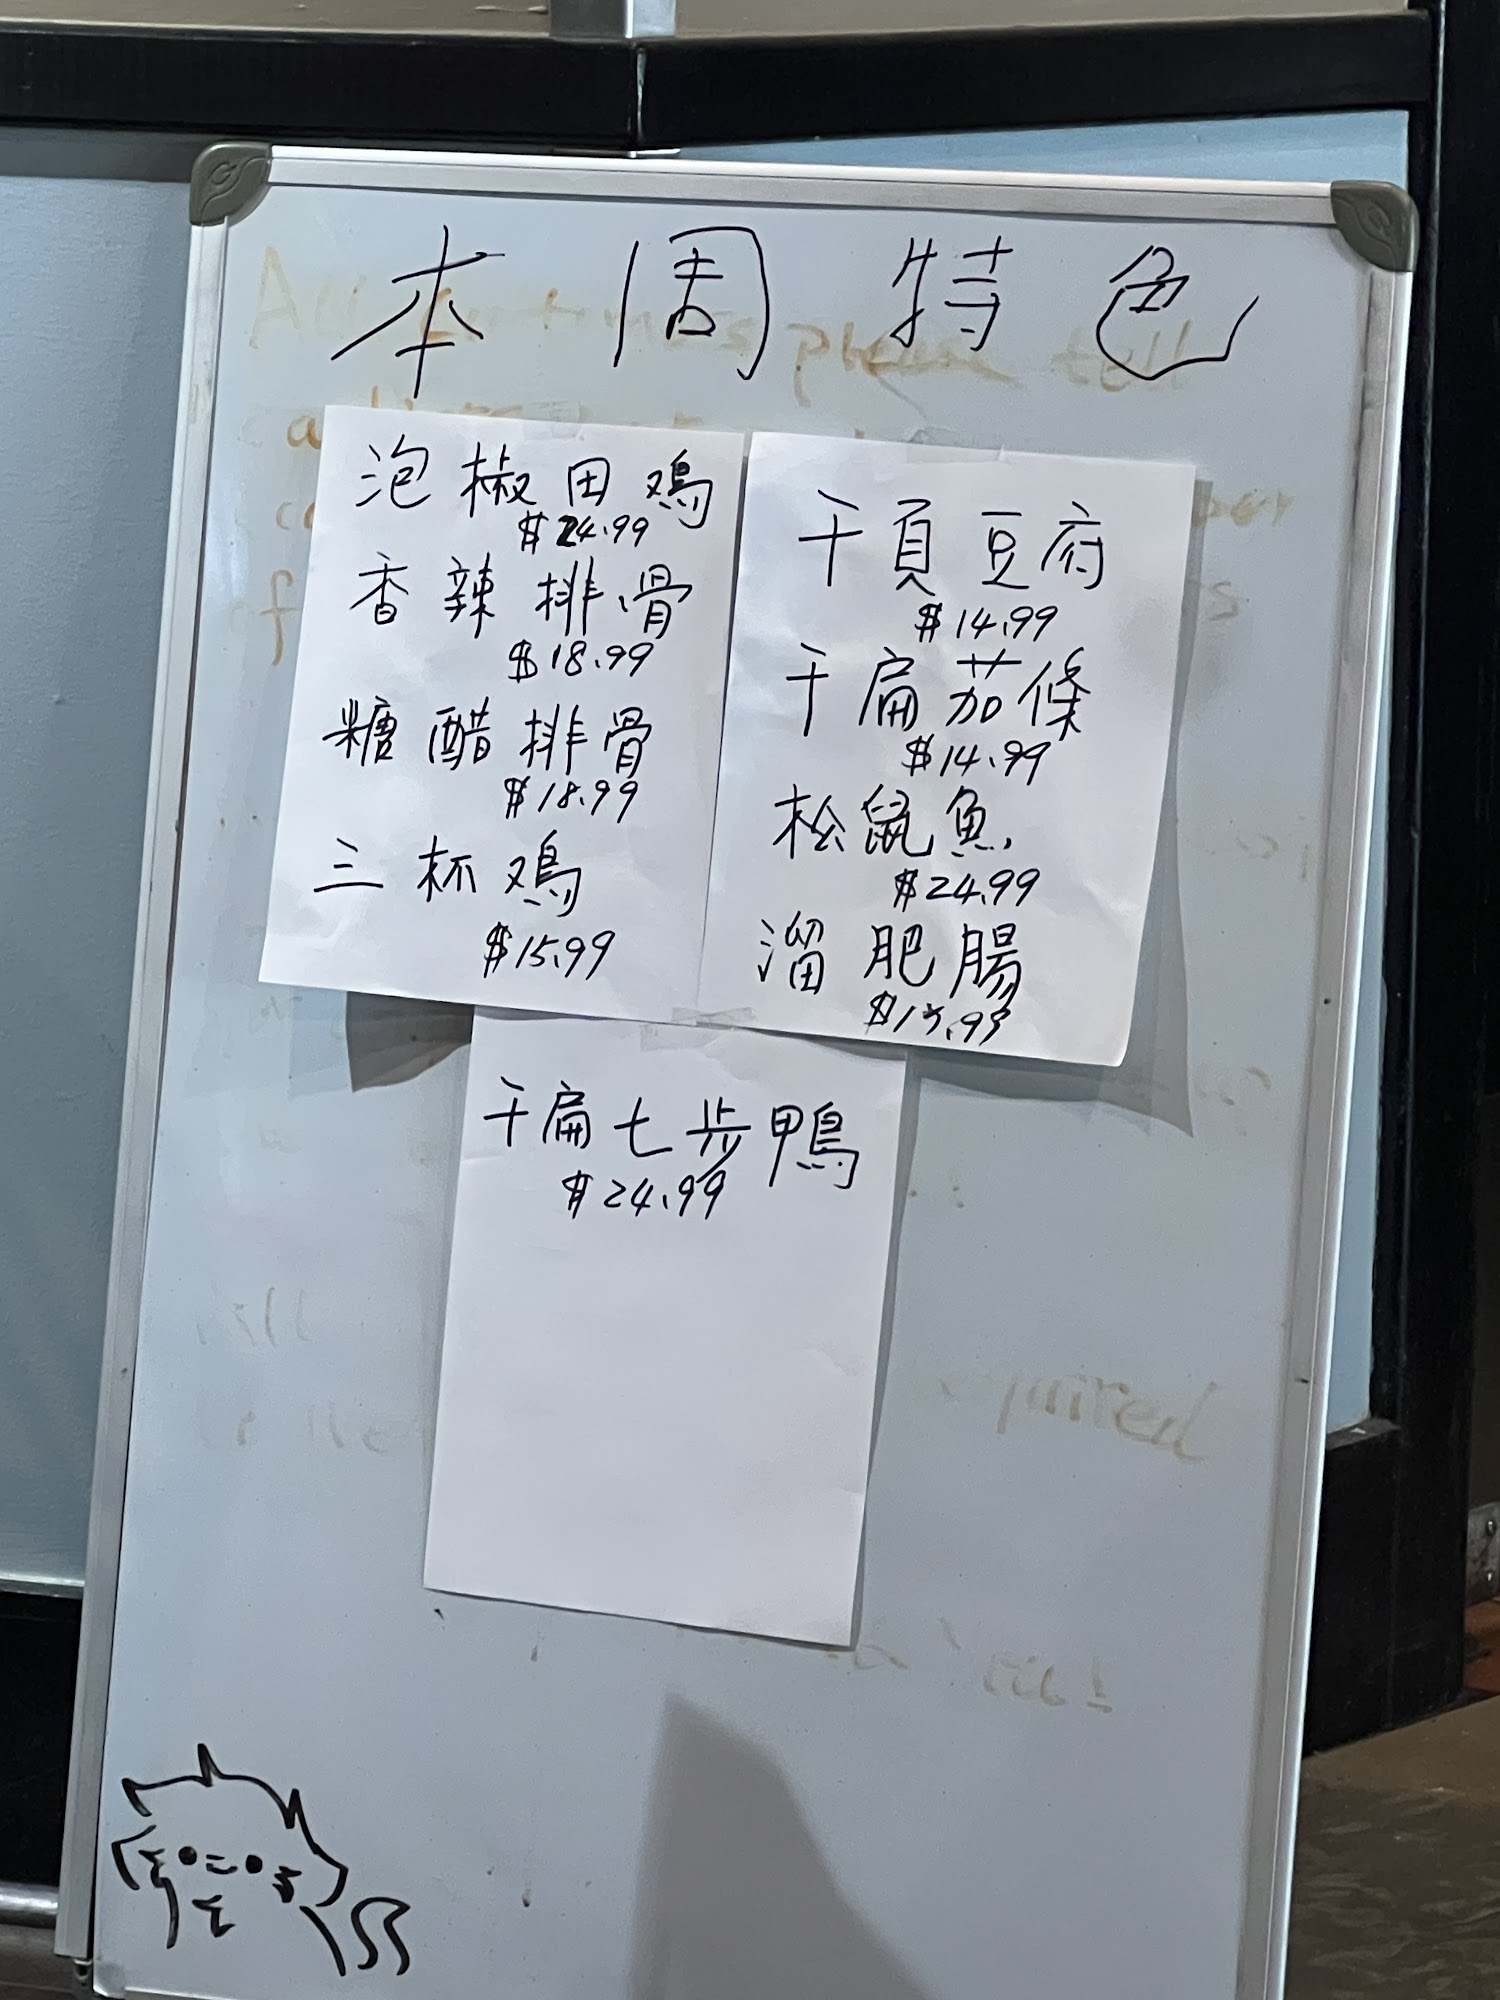 本周特色
泡椒田鸡
$24.99
香辣排骨
$18.99
糖醋排骨
$18.99
三杯鸡
$15.99
干頁豆府
$14.99
干扁茄條
$14.99
松鼠魚
$24.99
溜肥腸
$15.99
干扁七步鴨
$24.99
please tell